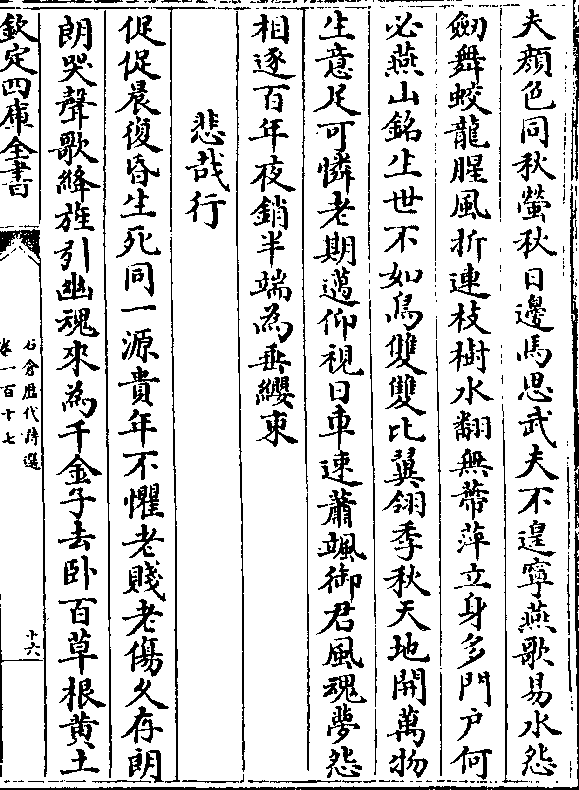 夫顔色同秋螢秋日邊馬思武夫不遑寧燕歌易水怨
劒舞蛟龍腥風折連枝樹水翻無蔕萍立身多門戶何
必燕山銘生世不如鳥雙雙比翼翎季秋天地閒萬物
生意足可憐老期邁仰視日車速蕭颯御君風魂夢怨
相逐百年夜銷半端為垂纓束
悲哉行
促促晨復昏生死同一源貴年不懼老賤老傷久存朗
朗哭聲歌絳旌引幽魂來為千金子去卧百草根黄土
欽定四庫全書
石倉歴代詩選
卷一百十七
十六